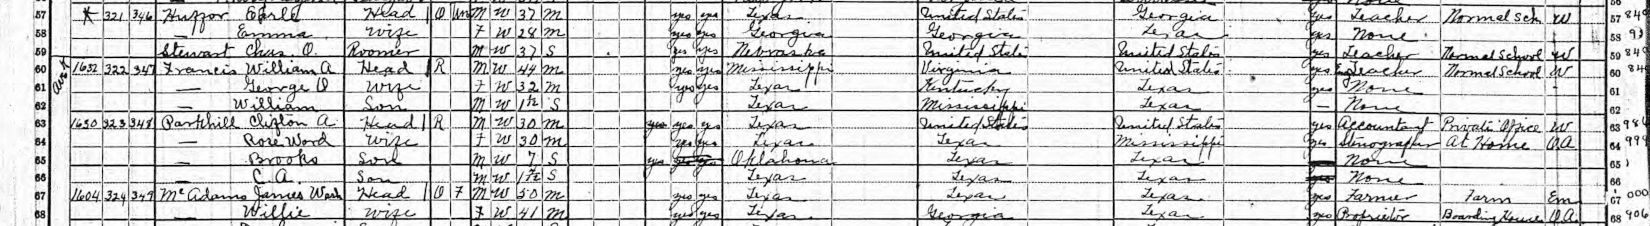 57 * 321 346 Huffor Earle Head O Un M W 37 M yes yes Texas United States Georgia yes Teacher Normal Sch W 57
58 — Emma Wife F W 28 M yes yes Georgia Georgia Texas yes None 58
59 Stewart Chas. O. Roomer M W 37 S yes yes Nebraska United States United States yes Teacher Normal School W 59
60 1632 322 347 Francis William A Head R M W 44 M yes yes Mississippi Virginia United States yes Teacher Normal School W 60
61 — George O Wife F W 32 M yes yes Texas Kentucky Texas yes None 61
62 — William Son M W 1 S Texas Mississippi Texas — None 62
63 1630 323 348 Parkhill Clifton A. Head R M W 30 M yes yes yes Texas United States United States yes Accountant Private Office W 63
64 — Rose Word Wife F W 30 M yes yes Texas Texas Mississippi yes Stenographer At Home O.A. 64
65 — Brooks Son M W 7 S yes Oklahoma Texas Texas None 65
66 — C. A. Son M W 1 S Texas Texas Texas None 66
67 1604 324 349 McAdams James Wash Head O F M W 50 M yes yes Texas Texas Texas yes Farmer Farm Em 67 000
68 — Willie Wife F W 41 M yes yes Texas Georgia Texas yes Proprietor Boarding House O.A. 68 906